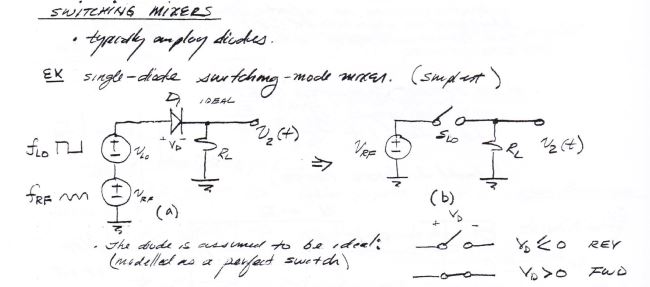 SWITCHING MIXERS
• typically employ diodes.
EX single-diode switching-mode mixer. (simplest)
D, IDEAL
+ V_D -
fLO
V_LO
R_L
V_2(t)
⇒
V_RF
S_LO
R_L
V_2(t)
fRF
V_RF
(a)
(b)
+ V_D -
• The diode is assumed to be ideal:
(modelled as a perfect switch)
V_D ≤ 0 REV
V_D > 0 FWD